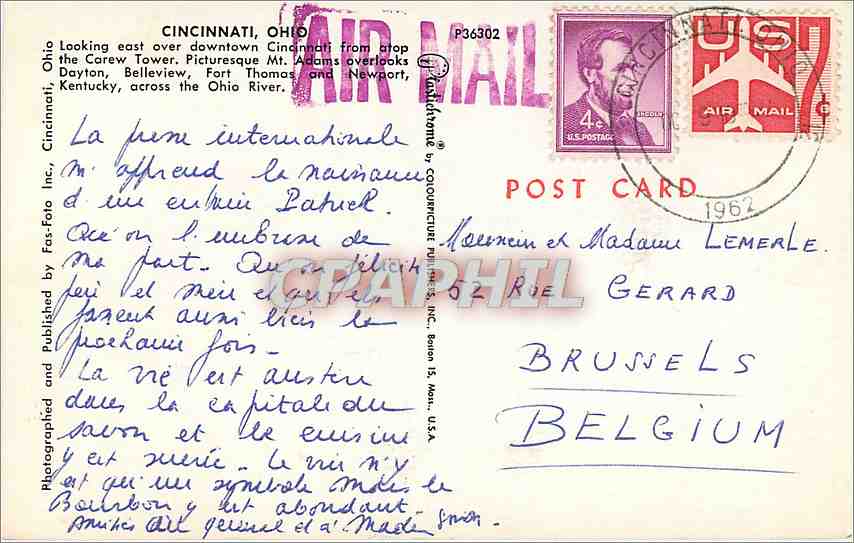 CINCINNATI, OHIO
Looking east over downtown Cincinnati from atop
the Carew Tower. Picturesque Mt. Adams overlooks
Dayton, Belleview, Fort Thomas and Newport,
Kentucky, across the Ohio River.
Photographed and Published by Fas-Foto Inc., Cincinnati, Ohio
AIR MAIL
P36302
Plastichrome® by COLOURPICTURE PUBLISHERS, INC., Boston 15, Mass., U.S.A.
4¢
LINCOLN
U.S. POSTAGE
US 7¢
AIR MAIL
CINCINNATI, OHIO
1962
POST CARD
La presse internationale
m'apprend la naissance
d'un Patrick.
Qu'on l'embrasse de
ma part. Qu'on félicite
père et mère et qu'ils
fassent aussi bien la
prochaine fois.
La vie est austère
dans la capitale du
savon et la cuisine
y est sucrée. Le vin n'y
est qu'un symbole mais le
Bourbon y est abondant.
Amitiés du général et à
Monsieur et Madame LEMERLE.
52 RUE GERARD
BRUSSELS
BELGIUM
CPAPHIL